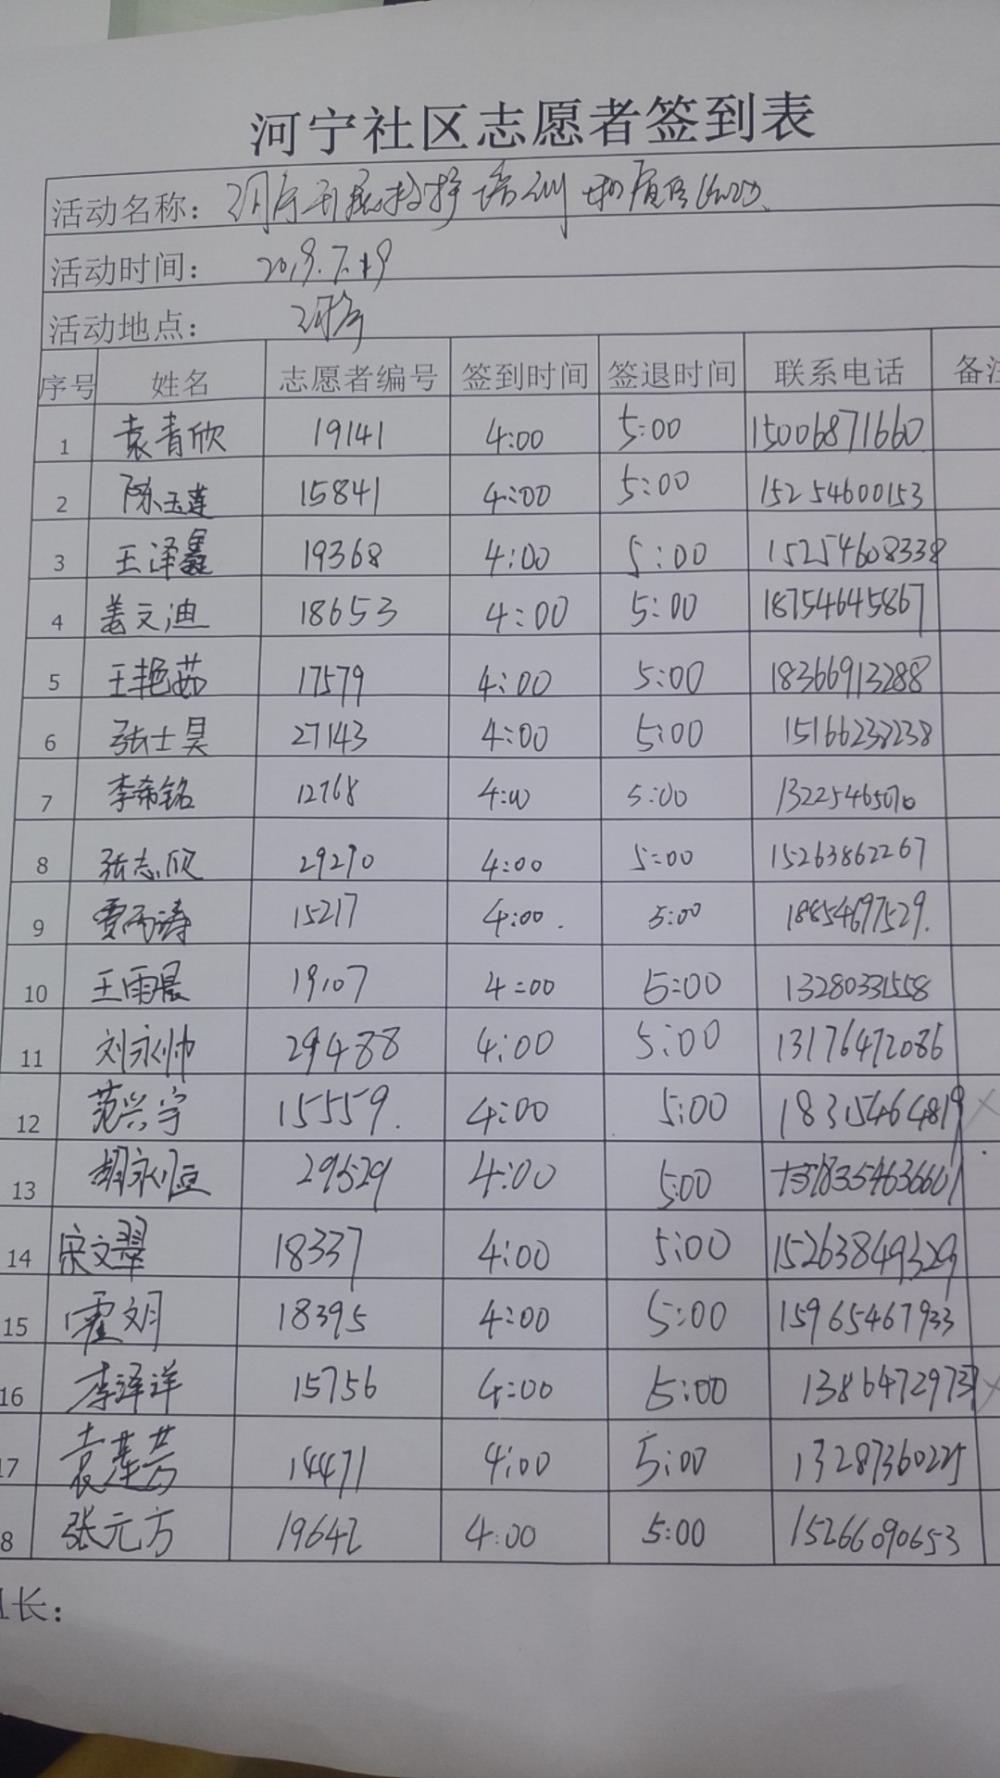 河宁社区志愿者签到表
活动名称： 培训
活动时间： 2019.7.19
活动地点：
序号 姓名 志愿者编号 签到时间 签退时间 联系电话 备注
1 袁青欣 19141 4:00 5:00 15006871660
2 陈玉莲 15841 4:00 5:00 15254600153
3 王泽鑫 19368 4:00 5:00 15254608338
4 姜文迪 18653 4:00 5:00 18754645867
5 王艳茹 17579 4:00 5:00 18366913288
6 张士昊 27143 4:00 5:00 15166238238
7 李希铭 12768 4:00 5:00 13225465070
8 张志欣 29290 4:00 5:00 15263862267
9 贾雨涛 15217 4:00. 5:00 18854697529.
10 王雨晨 19107 4:00 5:00 13280331558
11 刘永帅 29488 4:00 5:00 13176472086
12 范兴宇 15559. 4:00 5:00 18315464819 ×
13 胡永恒 29529 4:00 5:00 18354636601
14 宋文翠 18337 4:00 5:00 15263849329
15 霍文明 18395 4:00 5:00 15965467933
16 李泽洋 15756 4:00 5:00 13864729737 ×
17 袁莲芳 14471 4:00 5:00 13287360225
8 张元方 19642 4:00 5:00 15266090653
长：